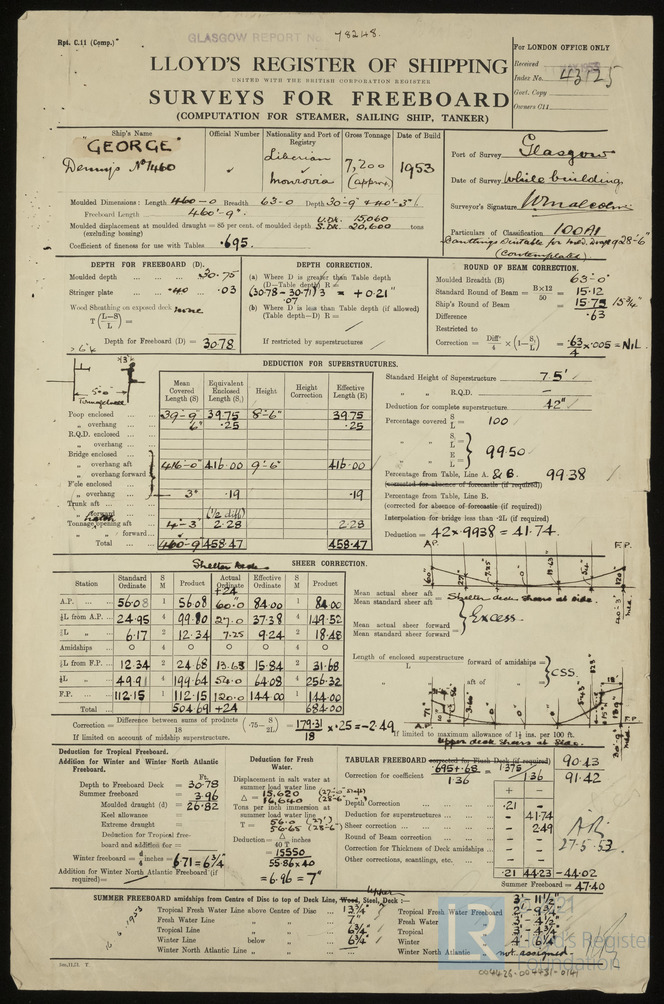 Rpt. C.11 (Comp.)
GLASGOW REPORT No. 78248.
For LONDON OFFICE ONLY
LLOYD'S REGISTER OF SHIPPING
UNITED WITH THE BRITISH CORPORATION REGISTER
SURVEYS FOR FREEBOARD
(COMPUTATION FOR STEAMER, SAILING SHIP, TANKER)
Received
Index No. 43125
Govt. Copy
Owners C11
Ship's Name
"GEORGE"
Denny's No 1460
Official Number
Nationality and Port of Registry
Liberian
Monrovia
Gross Tonnage
7,200
(approx)
Date of Build
1953
Port of Survey Glasgow
Date of Survey While building
Surveyor's Signature W Malcolm
Particulars of Classification 100A1
(Contemplated)
Moulded Dimensions: Length 460-0 Breadth 63-0 Depth 30'-9" & 40'-3"
Freeboard Length 460'-9"
Moulded displacement at moulded draught = 85 per cent. of moulded depth U.DK. 15,060
(excluding bossing) S.DK. 20,600 tons
Coefficient of fineness for use with Tables .695
DEPTH FOR FREEBOARD (D).
Moulded depth 30.75
Stringer plate .40 .03
Wood Sheathing on exposed deck none
T(L-S/L) =
Depth for Freeboard (D) = 30.78
DEPTH CORRECTION.
(a) Where D is greater than Table depth
(D—Table depth) R =
(30.78 - 30.71) 3 = +0.21"
.07
(b) Where D is less than Table depth (if allowed)
(Table depth—D) R =
If restricted by superstructures
ROUND OF BEAM CORRECTION.
Moulded Breadth (B) 63'-0"
Standard Round of Beam = B×12/50 = 15.12
Ship's Round of Beam = 15.75 15¾"
Difference .63
Restricted to
Correction = Diff/4 × (1-S/L) = .63/4 × .005 = NIL
DEDUCTION FOR SUPERSTRUCTURES.
Mean Covered Length (S)
Equivalent Enclosed Length (S₁)
Height
Height Correction
Effective Length (E)
Poop enclosed 39-9 39.75 8'-6" 39.75
" overhang 6" .25 .25
R.Q.D. enclosed
" overhang
Bridge enclosed
" overhang aft 416-0" 416.00 9'-6" 416.00
" overhang forward
F'cle enclosed
" overhang 3" .19 .19
Trunk aft
" forward (½ diff)
Tonnage opening aft 4'-3" 2.28 2.28
" " forward
Total 460-9 458.47 458.47
Standard Height of Superstructure 7.5'
" " R.Q.D. —
Deduction for complete superstructure 42"
Percentage covered S/L = 100
S₁/L =
E/L = 99.50
Percentage from Table, Line A. & B. 99.38
(corrected for absence of forecastle (if required))
Percentage from Table, Line B.
(corrected for absence of forecastle (if required))
Interpolation for bridge less than .2L (if required)
Deduction = 42 × .9938 = 41.74.
Shelter Deck
SHEER CORRECTION.
Station
Standard Ordinate
S M
Product
Actual Ordinate
+24
Effective Ordinate
S M
Product
A.P. 56.08 1 56.08 60.0 84.00 1 84.00
⅙L from A.P. 24.95 4 99.80 27.0 37.38 4 149.52
⅓L " 6.17 2 12.34 7.25 9.24 2 18.48
Amidships 0 4 0 0 0 4 0
⅓L from F.P. 12.34 2 24.68 13.63 15.84 2 31.68
⅙L " 49.91 4 199.64 54.0 64.08 4 256.32
F.P. 112.15 1 112.15 120.0 144.00 1 144.00
Total 504.69 +24 684.00
Mean actual sheer aft
Mean standard sheer aft = Shelter deck sheers at side.
Mean actual sheer forward
Mean standard sheer forward = Excess.
Length of enclosed superstructure forward of amidships = CSS.
L
" " aft of " =
Correction = Difference between sums of products/18 (.75-S/2L) = 179.31/18 × .25 = -2.49
If limited on account of midship superstructure.
If limited to maximum allowance of 1½ ins. per 100 ft.
Upper deck sheers at side.
Deduction for Tropical Freeboard.
Addition for Winter and Winter North Atlantic Freeboard.
Ft.
Depth to Freeboard Deck = 30.78
Summer freeboard = 3.96
Moulded draught (d) = 26.82
Keel allowance =
Extreme draught =
Deduction for Tropical freeboard and addition for
Winter freeboard = d/4 inches = 6.71 = 6¾"
Addition for Winter North Atlantic Freeboard (if required) =
Deduction for Fresh Water.
Displacement in salt water at summer load water line
Δ = 15,620
16,640 (28'-6")
Tons per inch immersion at summer load water line
T = 56.0 (27')
56.65 (28'-6")
Deduction = Δ/40 T inches
= 15550
55.86×40
= 6.96 = 7"
TABULAR FREEBOARD corrected for Flush Deck (if required) 90.43
Correction for coefficient .695+.68/1.36 = 1.375/1.36 91.42
+ —
Depth Correction .21 —
Deduction for superstructures — 41.74
Sheer correction — 2.49
Round of Beam correction — —
Correction for Thickness of Deck amidships — —
Other corrections, scantlings, etc. — —
.21 44.23 -44.02
Summer Freeboard = 47.40
27-5-53
SUMMER FREEBOARD amidships from Centre of Disc to top of Deck Line, Wood, Steel, Upper Deck :—
Tropical Fresh Water Line above Centre of Disc 13¾"
Fresh Water Line " " 7"
Tropical Line " " 6¾"
Winter Line below " 6¾"
Winter North Atlantic Line " "
3'-11½"
Tropical Fresh Water Freeboard 2'-9¾"
Fresh Water " 3'-4½"
Tropical " 3'-4¾"
Winter " 4'-6¼"
Winter North Atlantic " not assigned
Lloyd's Register
Foundation
004426-004431-0141